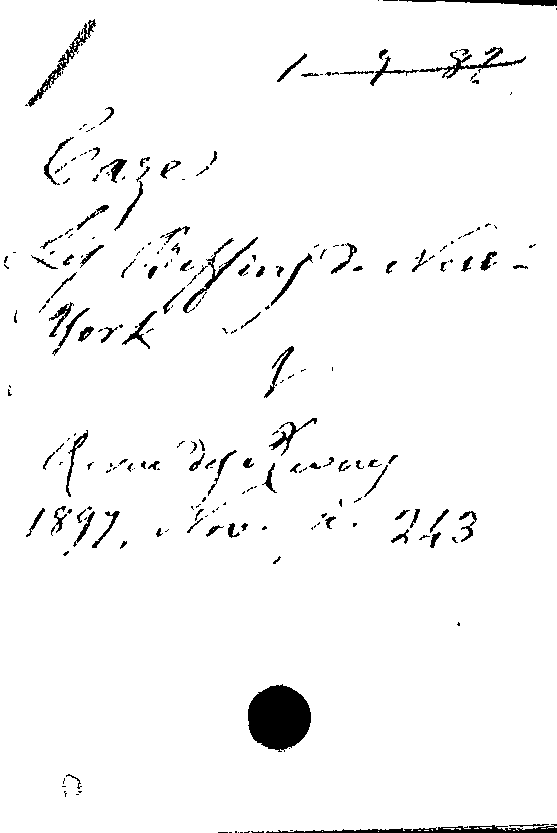 1 9 82
Caze
Les Bessins de New-
York
Revue des Revues
1897, Nov. à. 243